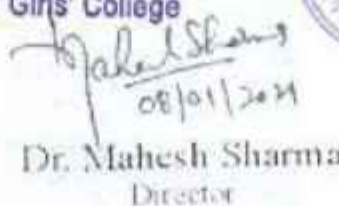 Girls' College
Mahesh Sharma
08/01/2024
Dr. Mahesh Sharma
Director